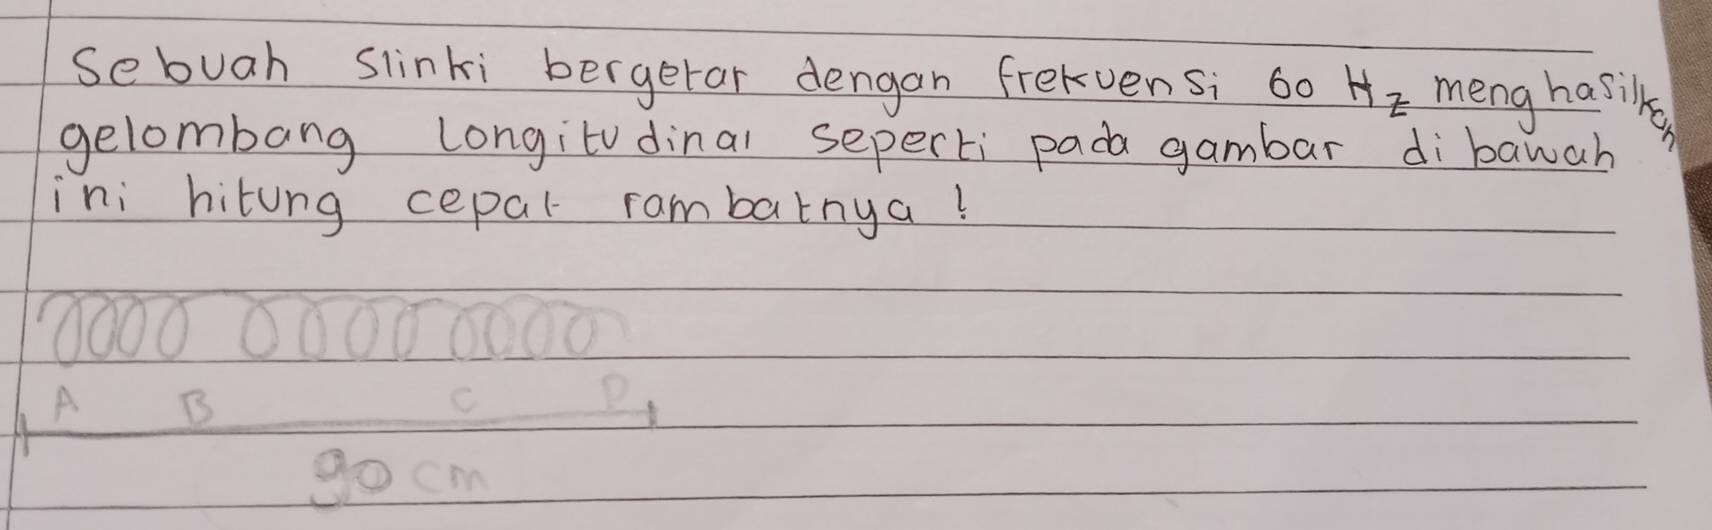 Sebuah Slinki bergetar dengan frekuensi 60 Hz menghasilkan
gelombang Longitudinal seperti pada gambar di bawah
ini hitung cepat rambatnya !
A B C D
90 cm